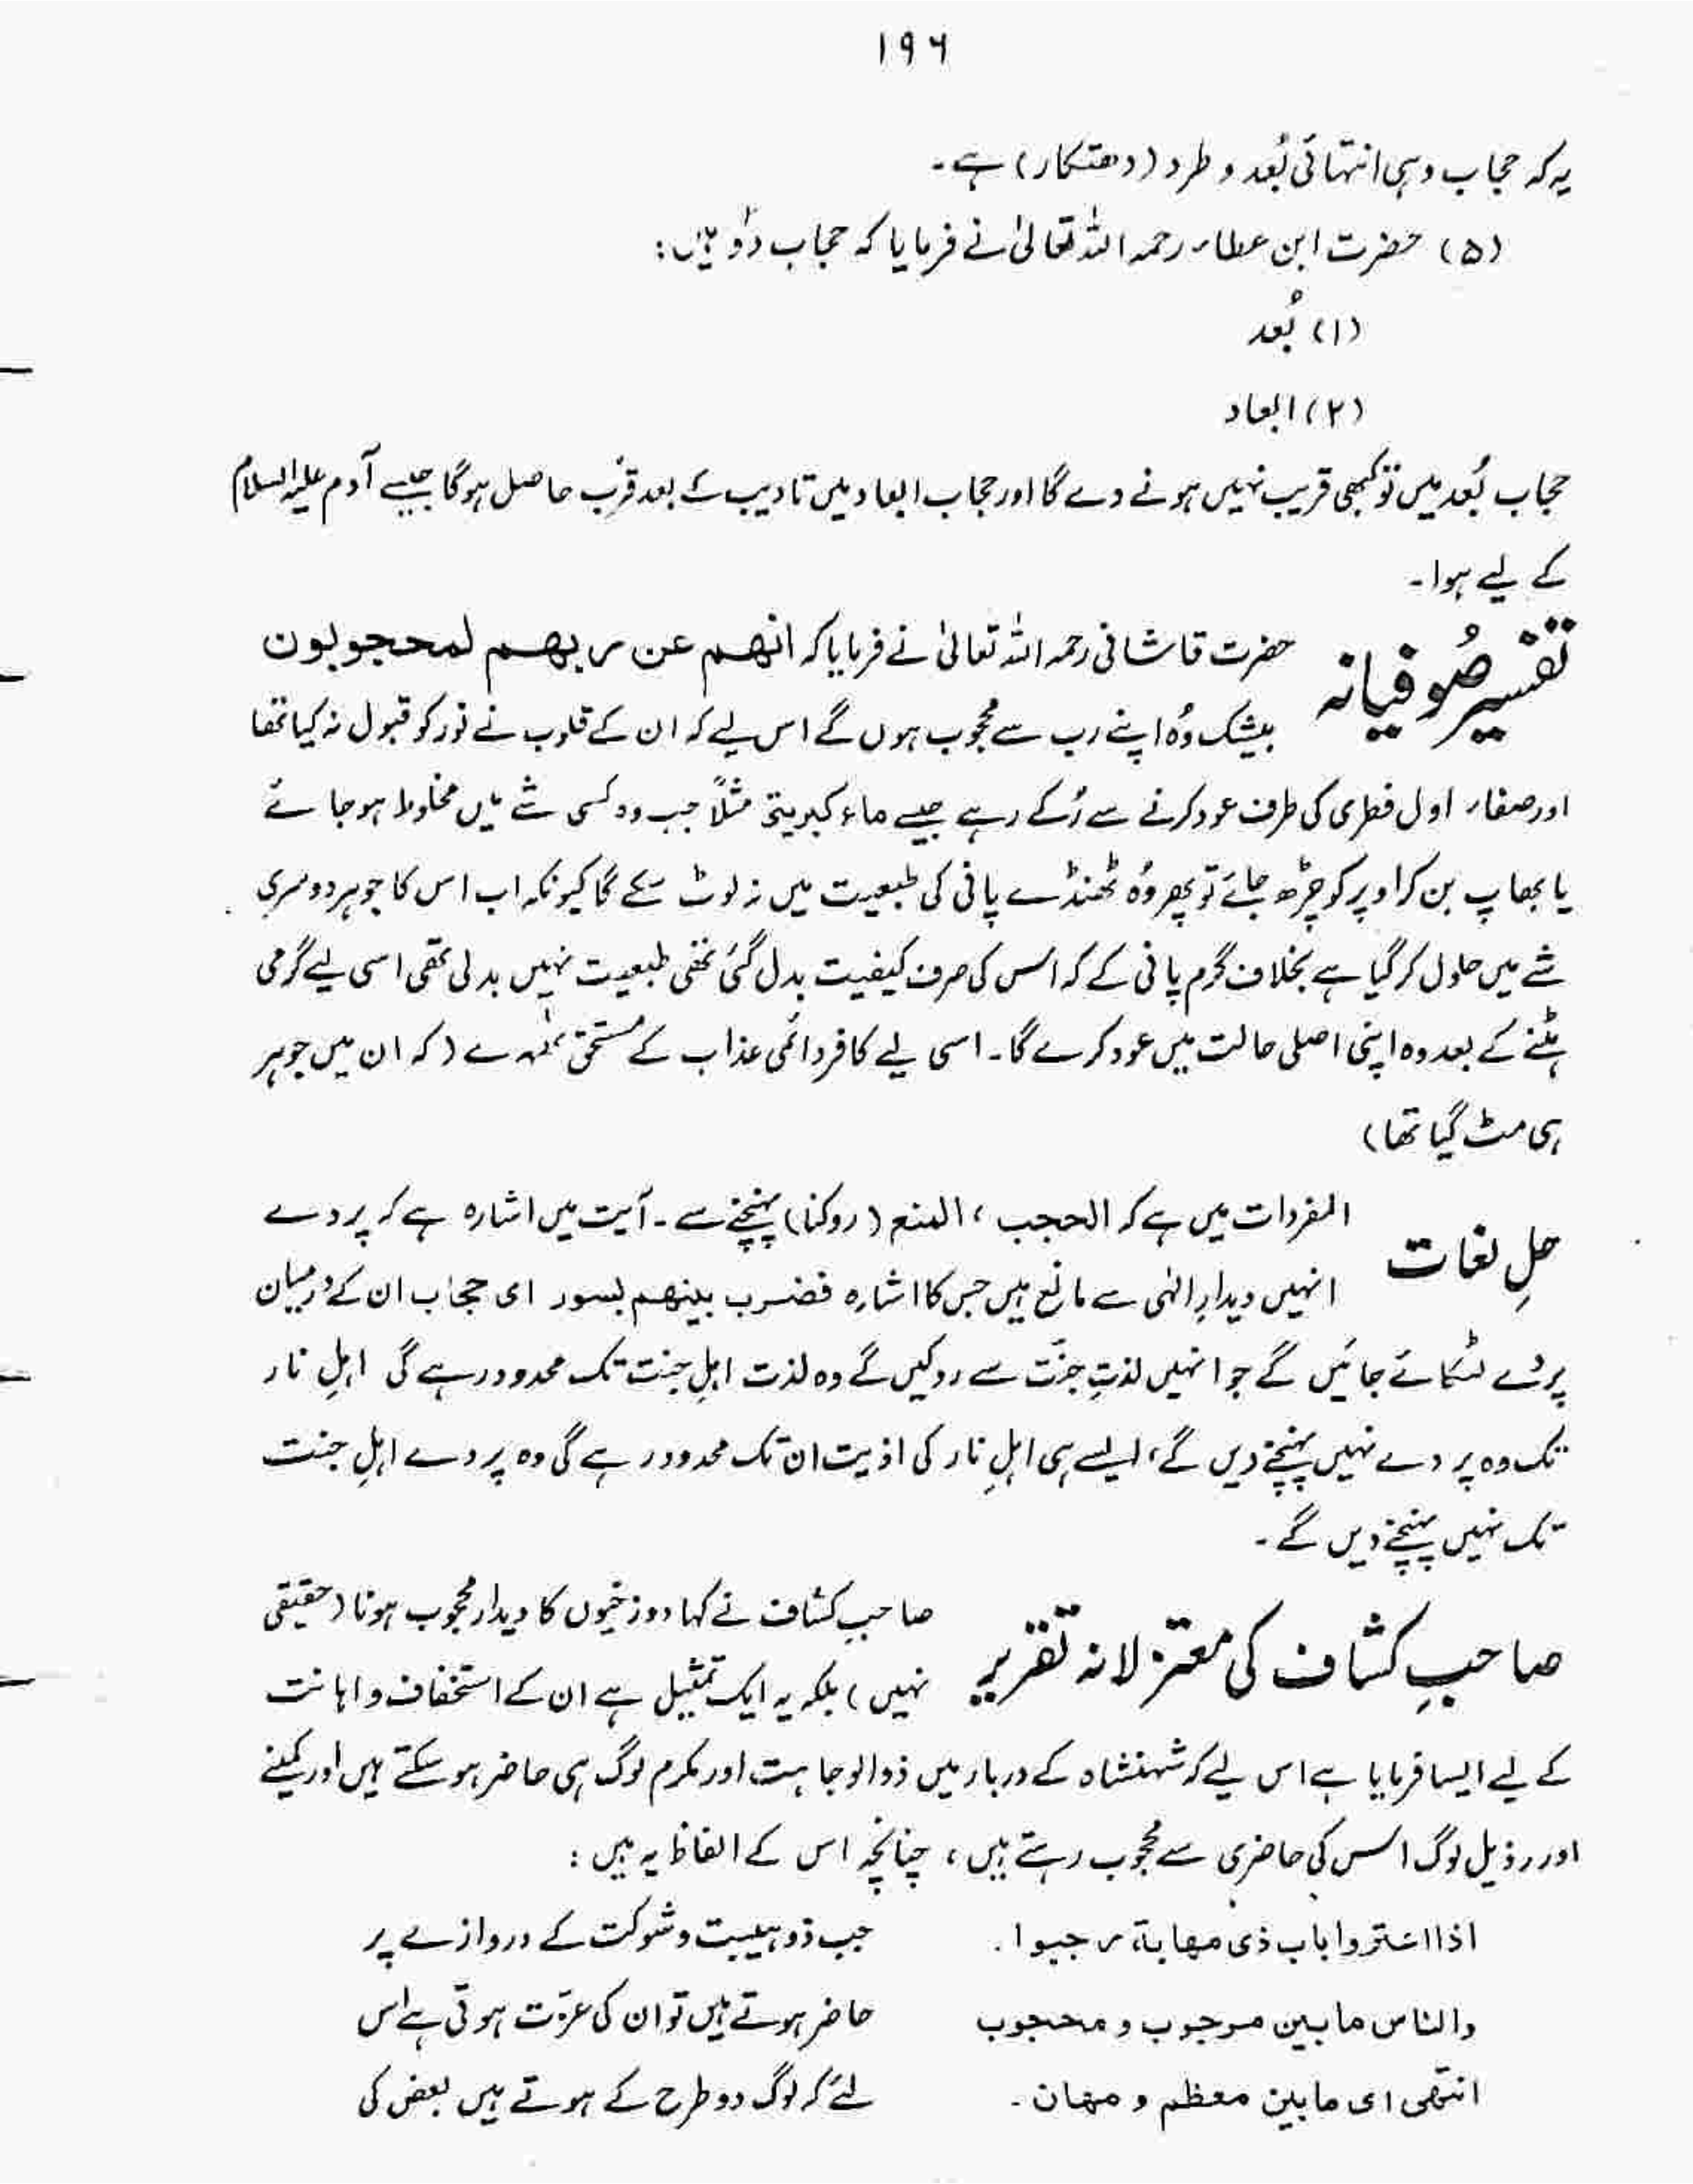 ۱۹۶
یہ کہ حجاب وہی انتہائی بُعد و طرد (دھتکار) ہے۔
(۵) حضرت ابن عطاء رحمہ اللہ تعالیٰ نے فرمایا کہ حجاب دو ہیں:
(۱) بُعد
(۲) ابعاد
حجاب بُعد میں تو کبھی قریب نہیں ہونے دے گا اور حجاب ابعاد میں تادیب کے بعد قرب حاصل ہوگا جیسے آدم علیہ السلام
کے لیے ہوا۔
تفسیر صُوفیانہ حضرت قاشانی رحمہ اللہ تعالیٰ نے فرمایا کہ انھم عن ربھم لمحجوبون
بیشک وُہ اپنے رب سے محجوب ہوں گے اس لیے کہ ان کے قلوب نے نور کو قبول نہ کیا تھا
اور صفاء اول فطری کی طرف عود کرنے سے رُکے رہے جیسے ماء کبریتی مثلاً جب وہ کسی شے میں مخلوط ہو جائے
یا بھاپ بن کر اوپر کو چڑھ جائے تو پھر وُہ ٹھنڈے پانی کی طبعیت میں نہ لوٹ سکے گا کیونکہ اب اس کا جوہر دوسری
شے میں حلول کر گیا ہے بخلاف گرم پانی کے کہ اس کی صرف کیفیت بدل گئی تھی طبعیت نہیں بدلی تھی اسی لیے گرمی
ہٹنے کے بعد وہ اپنی اصلی حالت میں عود کرے گا۔ اسی لیے کافر دائمی عذاب کے مستحق ٹھہرے (کہ ان میں جوہر
ہی مٹ گیا تھا)
حلِ لغات المفردات میں ہے کہ الحجب ، المنع (روکنا) پہنچنے سے۔ آیت میں اشارہ ہے کہ پردے
انہیں دیدارِ الٰہی سے مانع ہیں جس کا اشارہ فضرب بینھم بسور ای حجاب ان کے درمیان
پردے لٹکائے جائیں گے جو انہیں لذتِ جنّت سے روکیں گے وہ لذت اہلِ جنت تک محدود رہے گی اہلِ نار
تک وہ پردے نہیں پہنچنے دیں گے، ایسے ہی اہلِ نار کی اذیت ان تک محدود رہے گی وہ پردے اہلِ جنت
تک نہیں پہنچنے دیں گے۔
صاحبِ کشاف کی معتزلانہ تقریر صاحبِ کشاف نے کہا دوزخیوں کا دیدار محجوب ہونا (حقیقی
نہیں) بلکہ یہ ایک تمثیل ہے ان کے استخفاف و اہانت
کے لیے ایسا فرمایا ہے اس لیے کہ شہنشاہ کے دربار میں ذوالوجاہت اور مکرم لوگ ہی حاضر ہو سکتے ہیں اور کمینے
اور رذیل لوگ اس کی حاضری سے محجوب رہتے ہیں ، چنانچہ اس کے الفاظ یہ ہیں :
اذا اعتروا باب ذی مھابۃ رجبوا. جب ذو ہیبت و شوکت کے دروازے پر
والناس مابین مرجوب و محجوب حاضر ہوتے ہیں تو ان کی عزّت ہوتی ہے اس
انتھی ای مابین معظم و مہان۔ لئے کہ لوگ دو طرح کے ہوتے ہیں بعض کی